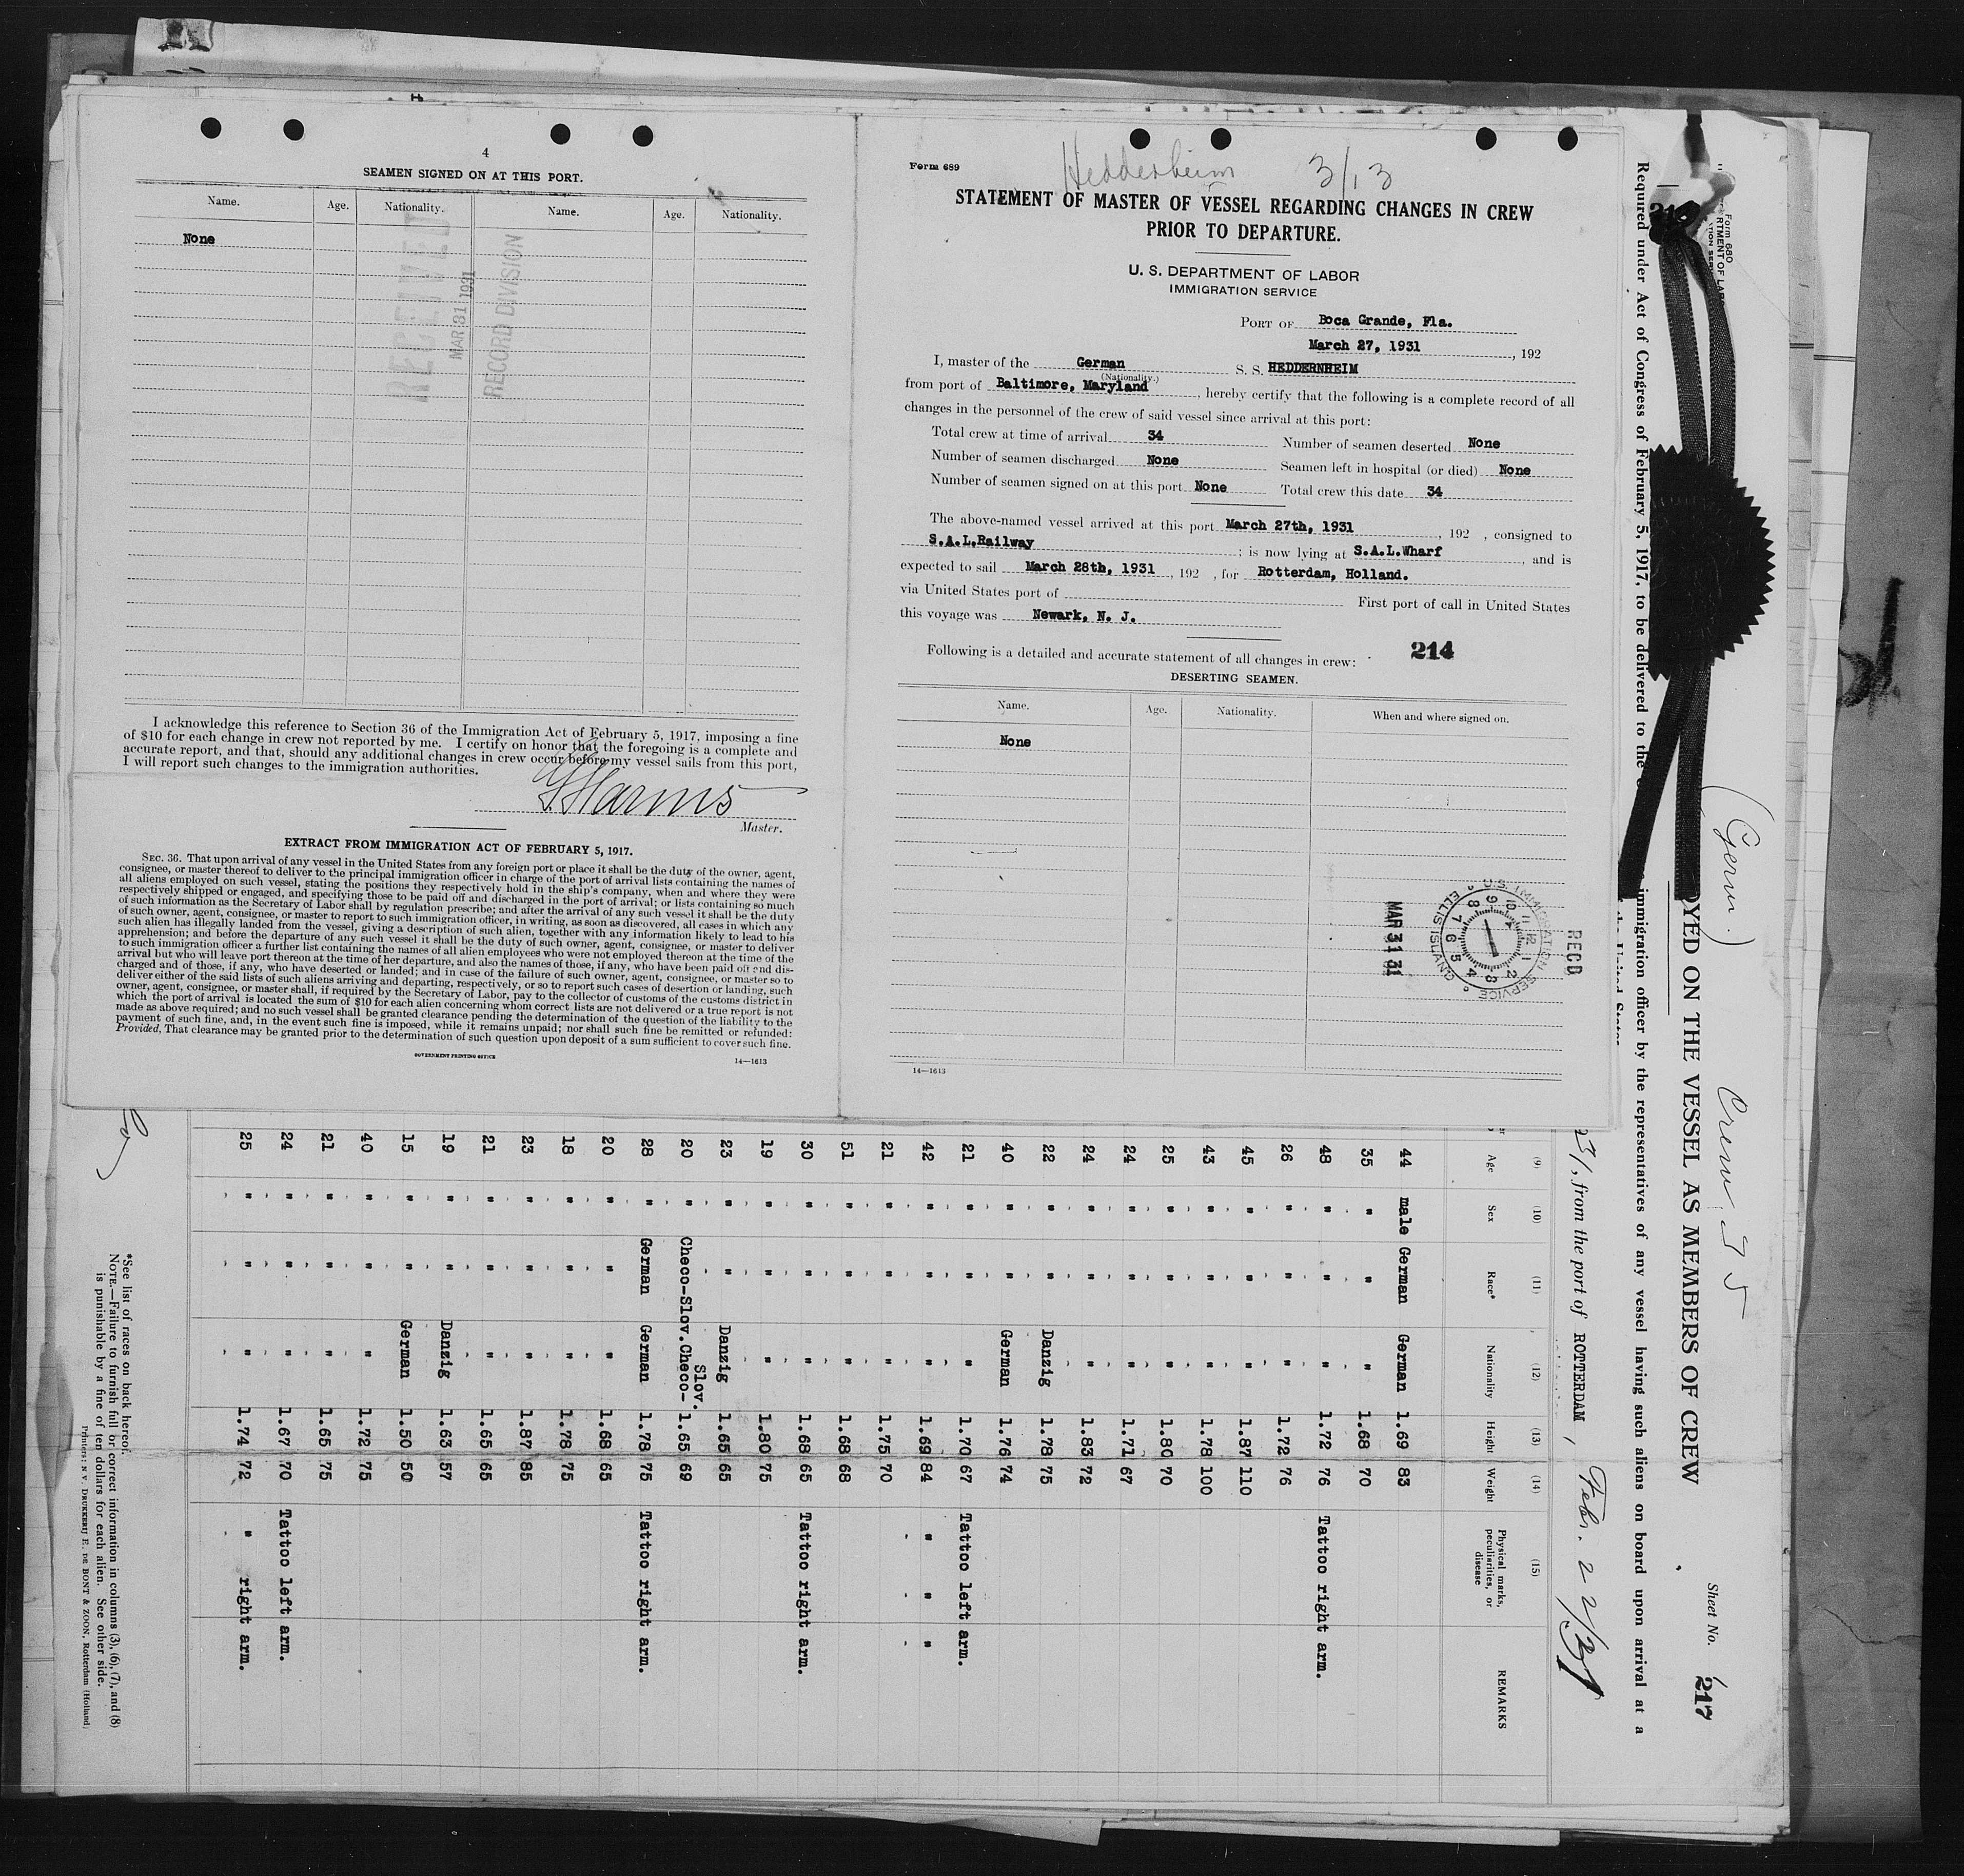 4
SEAMEN SIGNED ON AT THIS PORT.
Name. Age. Nationality. Name. Age. Nationality.
None
RECEIVED
MAR 31 1931
RECORD DIVISION
I acknowledge this reference to Section 36 of the Immigration Act of February 5, 1917, imposing a fine
of $10 for each change in crew not reported by me. I certify on honor that the foregoing is a complete and
accurate report, and that, should any additional changes in crew occur before my vessel sails from this port,
I will report such changes to the immigration authorities.
Harms
Master.
EXTRACT FROM IMMIGRATION ACT OF FEBRUARY 5, 1917.
SEC. 36. That upon arrival of any vessel in the United States from any foreign port or place it shall be the duty of the owner, agent,
consignee, or master thereof to deliver to the principal immigration officer in charge of the port of arrival lists containing the names of
all aliens employed on such vessel, stating the positions they respectively hold in the ship's company, when and where they were
respectively shipped or engaged, and specifying those to be paid off and discharged in the port of arrival; or lists containing so much
of such information as the Secretary of Labor shall by regulation prescribe; and after the arrival of any such vessel it shall be the duty
of such owner, agent, consignee, or master to report to such immigration officer, in writing, as soon as discovered, all cases in which any
such alien has illegally landed from the vessel, giving a description of such alien, together with any information likely to lead to his
apprehension; and before the departure of any such vessel it shall be the duty of such owner, agent, consignee, or master to deliver
to such immigration officer a further list containing the names of all alien employees who were not employed thereon at the time of the
arrival but who will leave port thereon at the time of her departure, and also the names of those, if any, who have been paid off and dis-
charged and of those, if any, who have deserted or landed; and in case of the failure of such owner, agent, consignee, or master so to
deliver either of the said lists of such aliens arriving and departing, respectively, or so to report such cases of desertion or landing, such
owner, agent, consignee, or master shall, if required by the Secretary of Labor, pay to the collector of customs of the customs district in
which the port of arrival is located the sum of $10 for each alien concerning whom correct lists are not delivered or a true report is not
made as above required; and no such vessel shall be granted clearance pending the determination of the question of the liability to the
payment of such fine, and, in the event such fine is imposed, while it remains unpaid; nor shall such fine be remitted or refunded:
Provided, That clearance may be granted prior to the determination of such question upon deposit of a sum sufficient to cover such fine.
GOVERNMENT PRINTING OFFICE
14—1613
Form 689
Hedderheim 3/13
STATEMENT OF MASTER OF VESSEL REGARDING CHANGES IN CREW
PRIOR TO DEPARTURE.
U. S. DEPARTMENT OF LABOR
IMMIGRATION SERVICE
PORT OF Boca Grande, Fla.
March 27, 1931, 192
I, master of the German S. S. HEDDERNHEIM
(Nationality.)
from port of Baltimore, Maryland, hereby certify that the following is a complete record of all
changes in the personnel of the crew of said vessel since arrival at this port:
Total crew at time of arrival 34 Number of seamen deserted None
Number of seamen discharged None Seamen left in hospital (or died) None
Number of seamen signed on at this port None Total crew this date 34
The above-named vessel arrived at this port March 27th, 1931, 192 , consigned to
S.A.L.Railway ; is now lying at S.A.L.Wharf, and is
expected to sail March 28th, 1931, 192 , for Rotterdam, Holland.
via United States port of First port of call in United States
this voyage was Newark, N. J.
Following is a detailed and accurate statement of all changes in crew: 214
DESERTING SEAMEN.
Name. Age. Nationality. When and where signed on.
None
RECD
U.S. IMMIGRATION SERVICE ELLIS ISLAND
1 2 3 4 5 6 7 8 9 10 11 12
MAR 31 31
14—1613
Form 680
Sheet No. 1
217
(Germ.) Crew 35
YED ON THE VESSEL AS MEMBERS OF CREW
Required under Act of Congress of February 5, 1917, to be delivered to the immigration officer by the representatives of any vessel having such aliens on board upon arrival at a
the United States
31, from the port of ROTTERDAM, Febr. 22/31
(9) (10) (11) (12) (13) (14) (15)
Age Sex Race* Nationality Height Weight Physical marks, peculiarities, or disease REMARKS
44 male German German 1.69 83
35 " " " 1.68 70
48 " " " 1.72 76 Tattoo right arm.
26 " " " 1.72 76
45 " " " 1.87 110
43 " " " 1.78 100
25 " " " 1.80 70
24 " " " 1.71 67
24 " " " 1.83 72
22 " " Danzig 1.78 75
40 " " German 1.76 74
21 " " " 1.70 67 Tattoo left arm.
42 " " " 1.69 84 " " "
21 " " " 1.75 70
51 " " " 1.68 68
30 " " " 1.68 65 Tattoo right arm.
19 " " " 1.80 75
23 " " Danzig 1.65 65
20 " Checo-Slov. Checo-Slov. 1.65 69
28 " German German 1.78 75 Tattoo right arm.
20 " " " 1.68 65
18 " " " 1.78 75
23 " " " 1.87 85
21 " " " 1.65 65
19 " " Danzig 1.63 57
15 " " German 1.50 50
40 " " " 1.72 75
21 " " " 1.65 75
24 " " " 1.67 70 Tattoo left arm.
25 " " " 1.74 72 " right arm.
*See list of races on back hereof.
NOTE.—Failure to furnish full or correct information in columns (3), (6), (7), and (8)
is punishable by a fine of ten dollars for each alien. See other side.
Printers: N.V. DRUKKERIJ E. DE BONT & ZOON, Rotterdam (Holland)